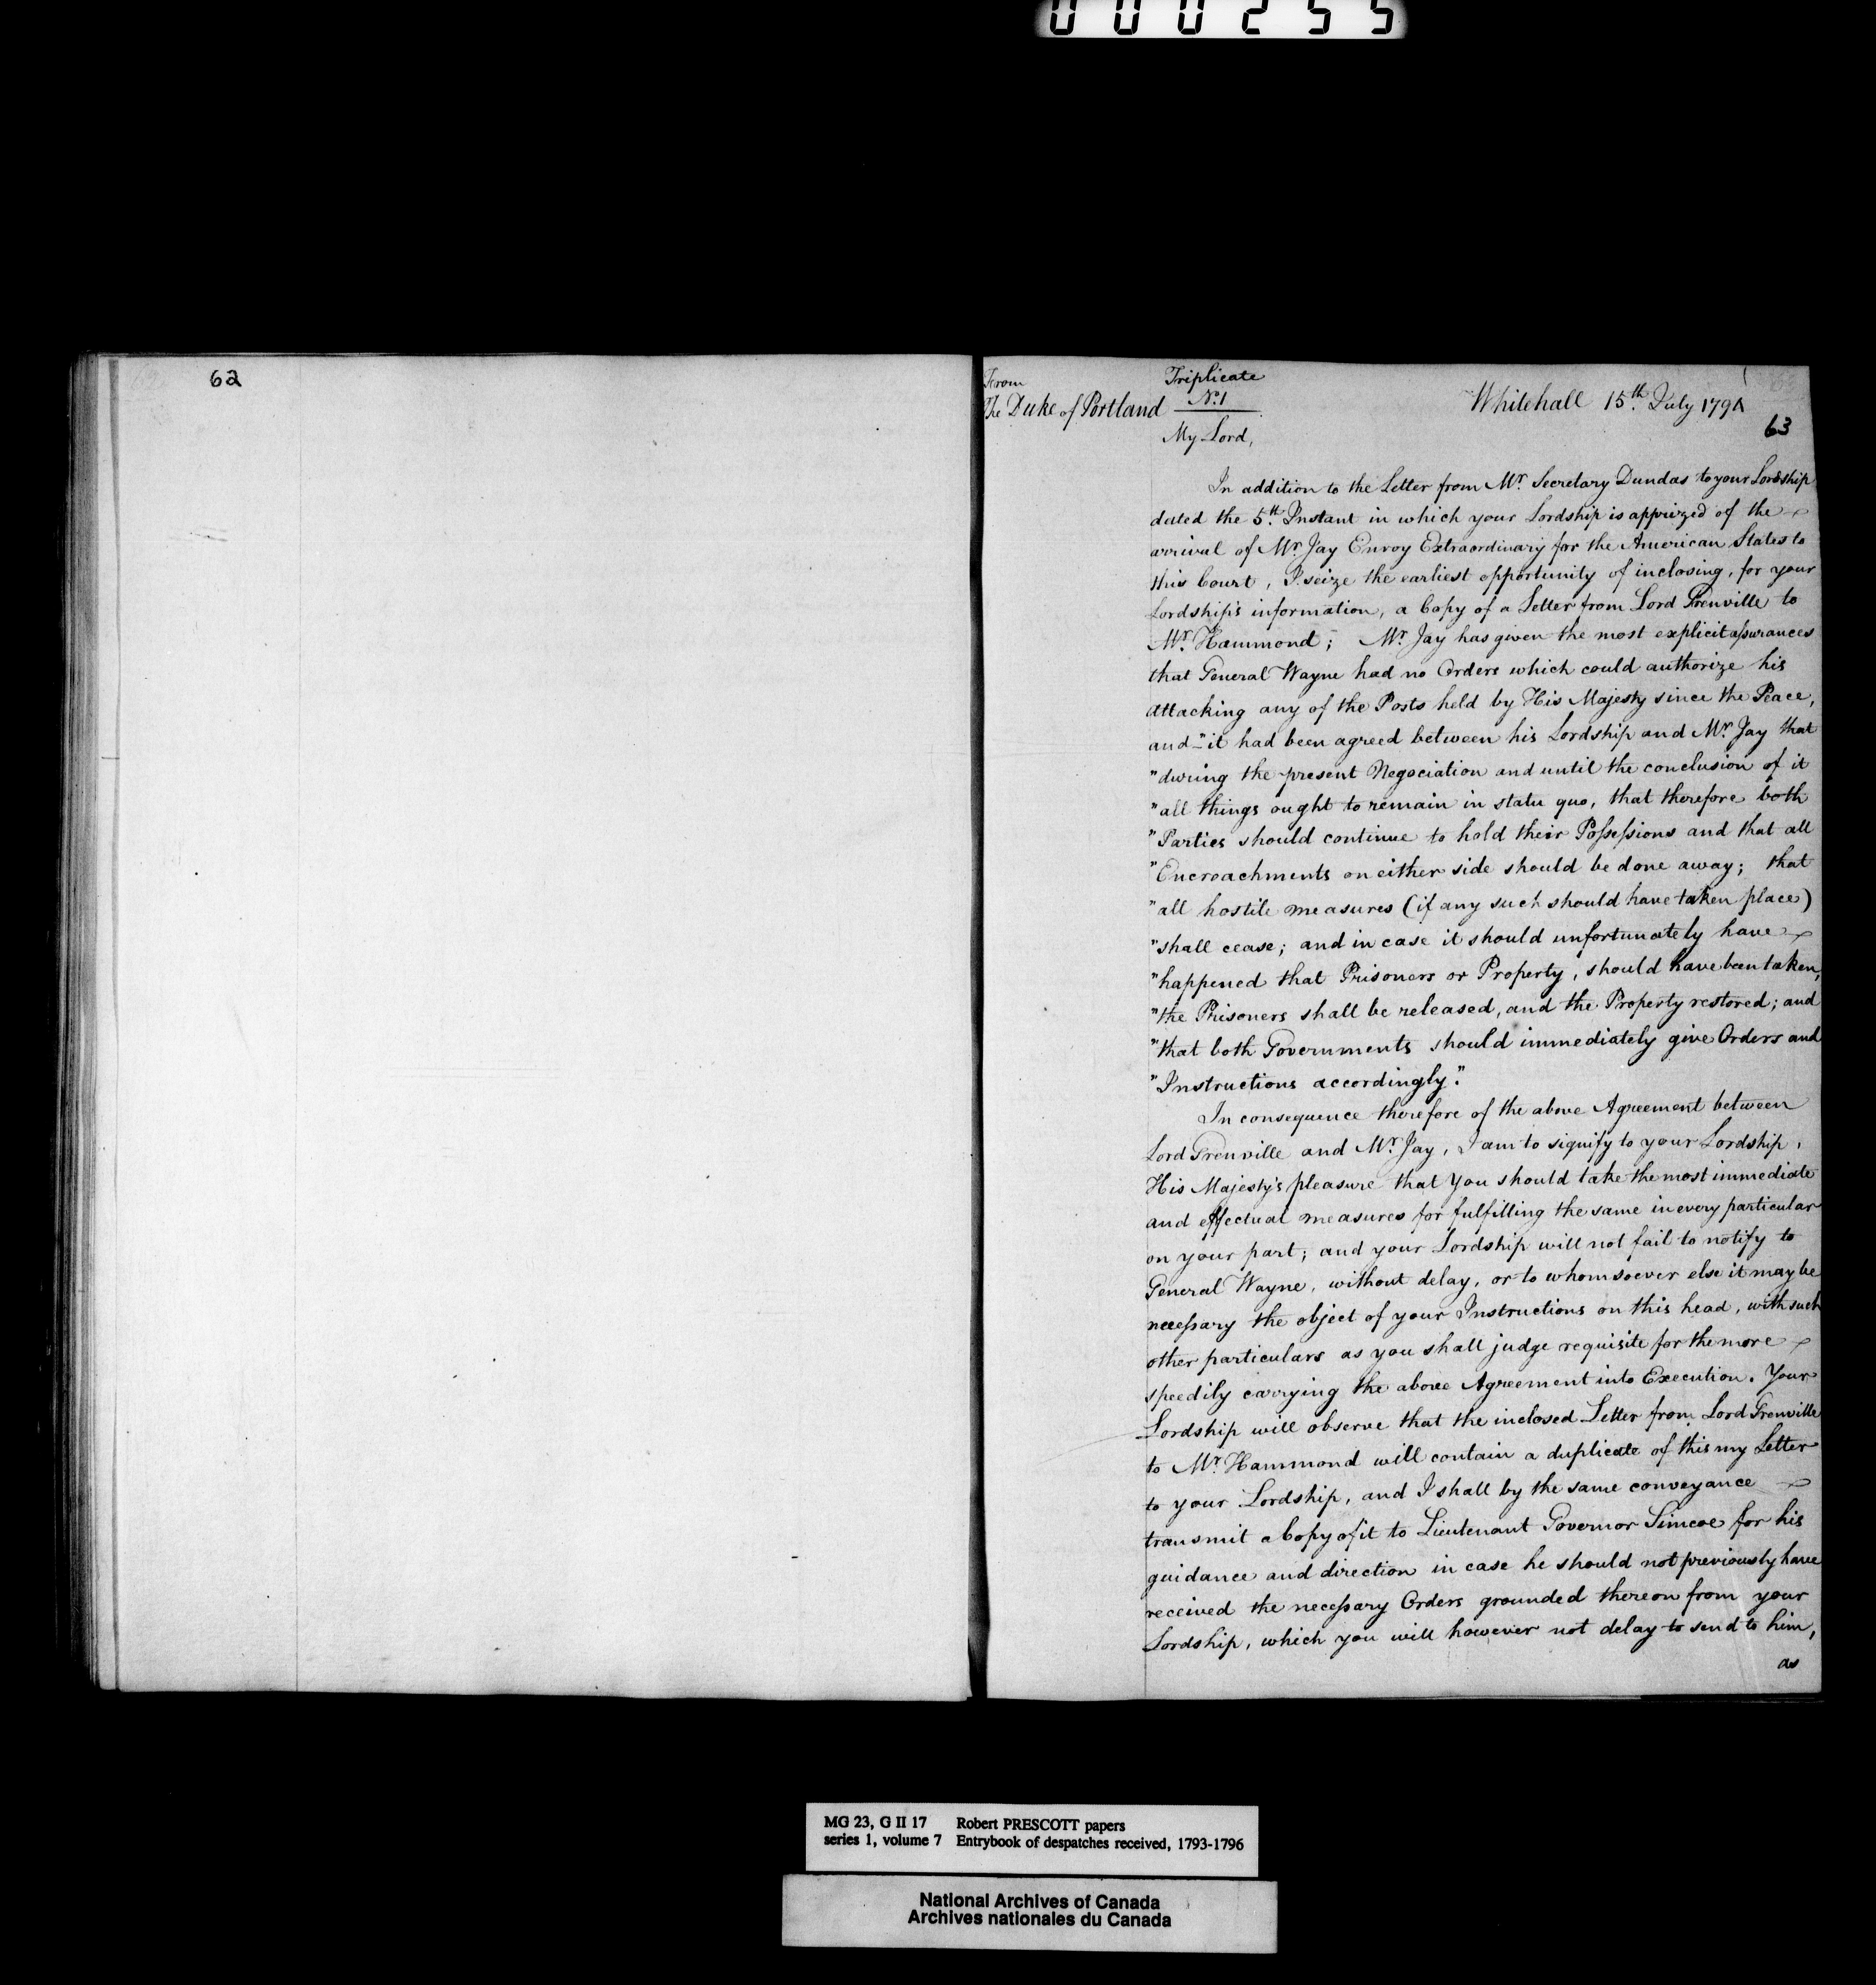 000255
62
From
The Duke of Portland
Triplicate
No. 1
Whitehall 15.th July 1794
63
My Lord,
In addition to the Letter from Mr. Secretary Dundas to your Lordship
dated the 5.th Instant in which your Lordship is apprized of the
arrival of Mr. Jay Envoy Extraordinary for the American States to
this Court, I seize the earliest opportunity of inclosing, for your
Lordship's information, a Copy of a Letter from Lord Grenville to
Mr. Hammond; Mr. Jay has given the most explicit assurances
that General Wayne had no Orders which could authorize his
attacking any of the Posts held by His Majesty since the Peace,
and "it had been agreed between his Lordship and Mr. Jay that
"during the present Negociation and until the conclusion of it
"all things ought to remain in statu quo, that therefore both
"Parties should continue to hold their Possessions and that all
"Encroachments on either side should be done away; that
"all hostile measures (if any such should have taken place)
"shall cease; and in case it should unfortunately have
"happened that Prisoners or Property, should have been taken,
"the Prisoners shall be released, and the Property restored; and
"that both Governments should immediately give Orders and
"Instructions accordingly."
In consequence therefore of the above Agreement between
Lord Grenville and Mr. Jay, I am to signify to your Lordship,
His Majesty's pleasure that You should take the most immediate
and effectual measures for fulfilling the same in every particular
on your part; and your Lordship will not fail to notify to
General Wayne, without delay, or to whomsoever else it may be
necessary the object of your Instructions on this head, with such
other particulars as you shall judge requisite for the more
speedily carrying the above Agreement into Execution. Your
Lordship will observe that the inclosed Letter from Lord Grenville
to Mr. Hammond will contain a duplicate of this my Letter
to your Lordship, and I shall by the same conveyance
transmit a Copy of it to Lieutenant Governor Simcoe for his
guidance and direction in case he should not previously have
received the necessary Orders grounded thereon from your
Lordship, which you will however not delay to send to him,
as
MG 23, G II 17 Robert PRESCOTT papers
series 1, volume 7 Entrybook of despatches received, 1793-1796
National Archives of Canada
Archives nationales du Canada